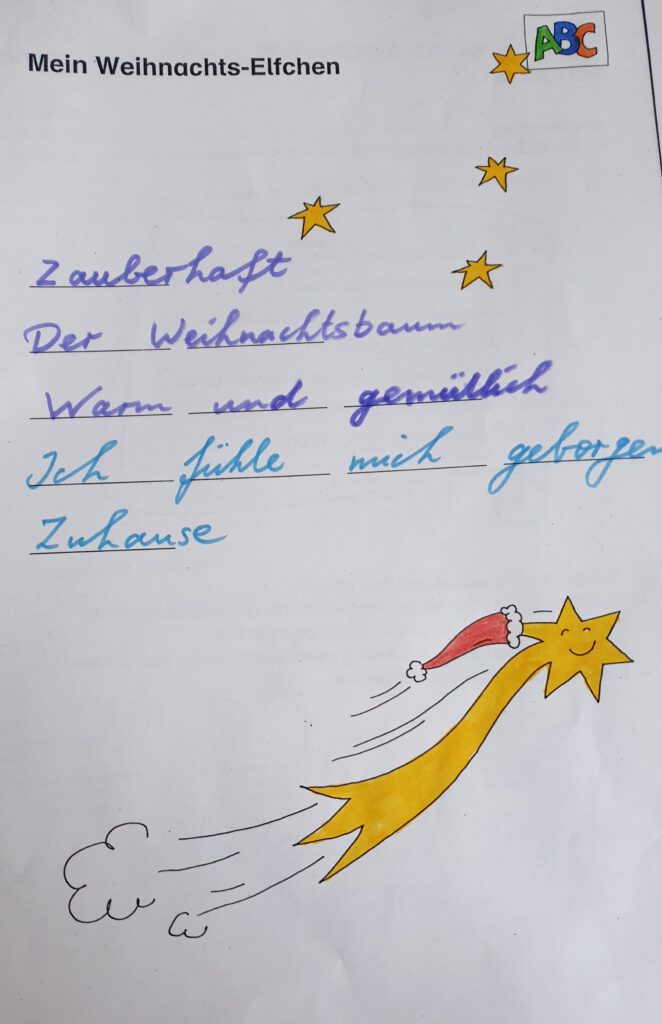 ABC
Mein Weihnachts-Elfchen
Zauberhaft
Der Weihnachtsbaum
Warm und gemütlich
Ich fühle mich geborgen
Zuhause